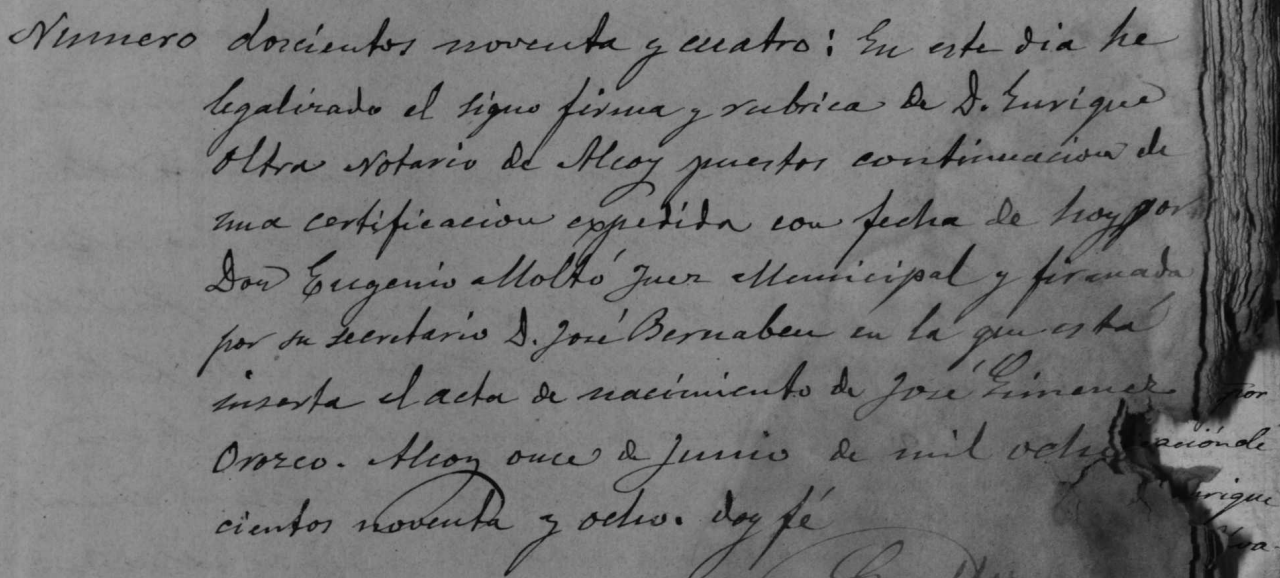 Numero doscientos noventa y cuatro: En este dia he
legalizado el signo firma y rubrica de D. Enrique
Oltra Notario de Alcoy puestos continuacion de
una certificacion expedida con fecha de hoy por
Don Eugenio Moltó Juez Municipal y firmada
por su secretario D. José Bernabeu en la que está
inserta el acta de nacimiento de José Gimenez
Orozco. Alcoy once de Junio de mil ocho
cientos noventa y ocho. doy fé